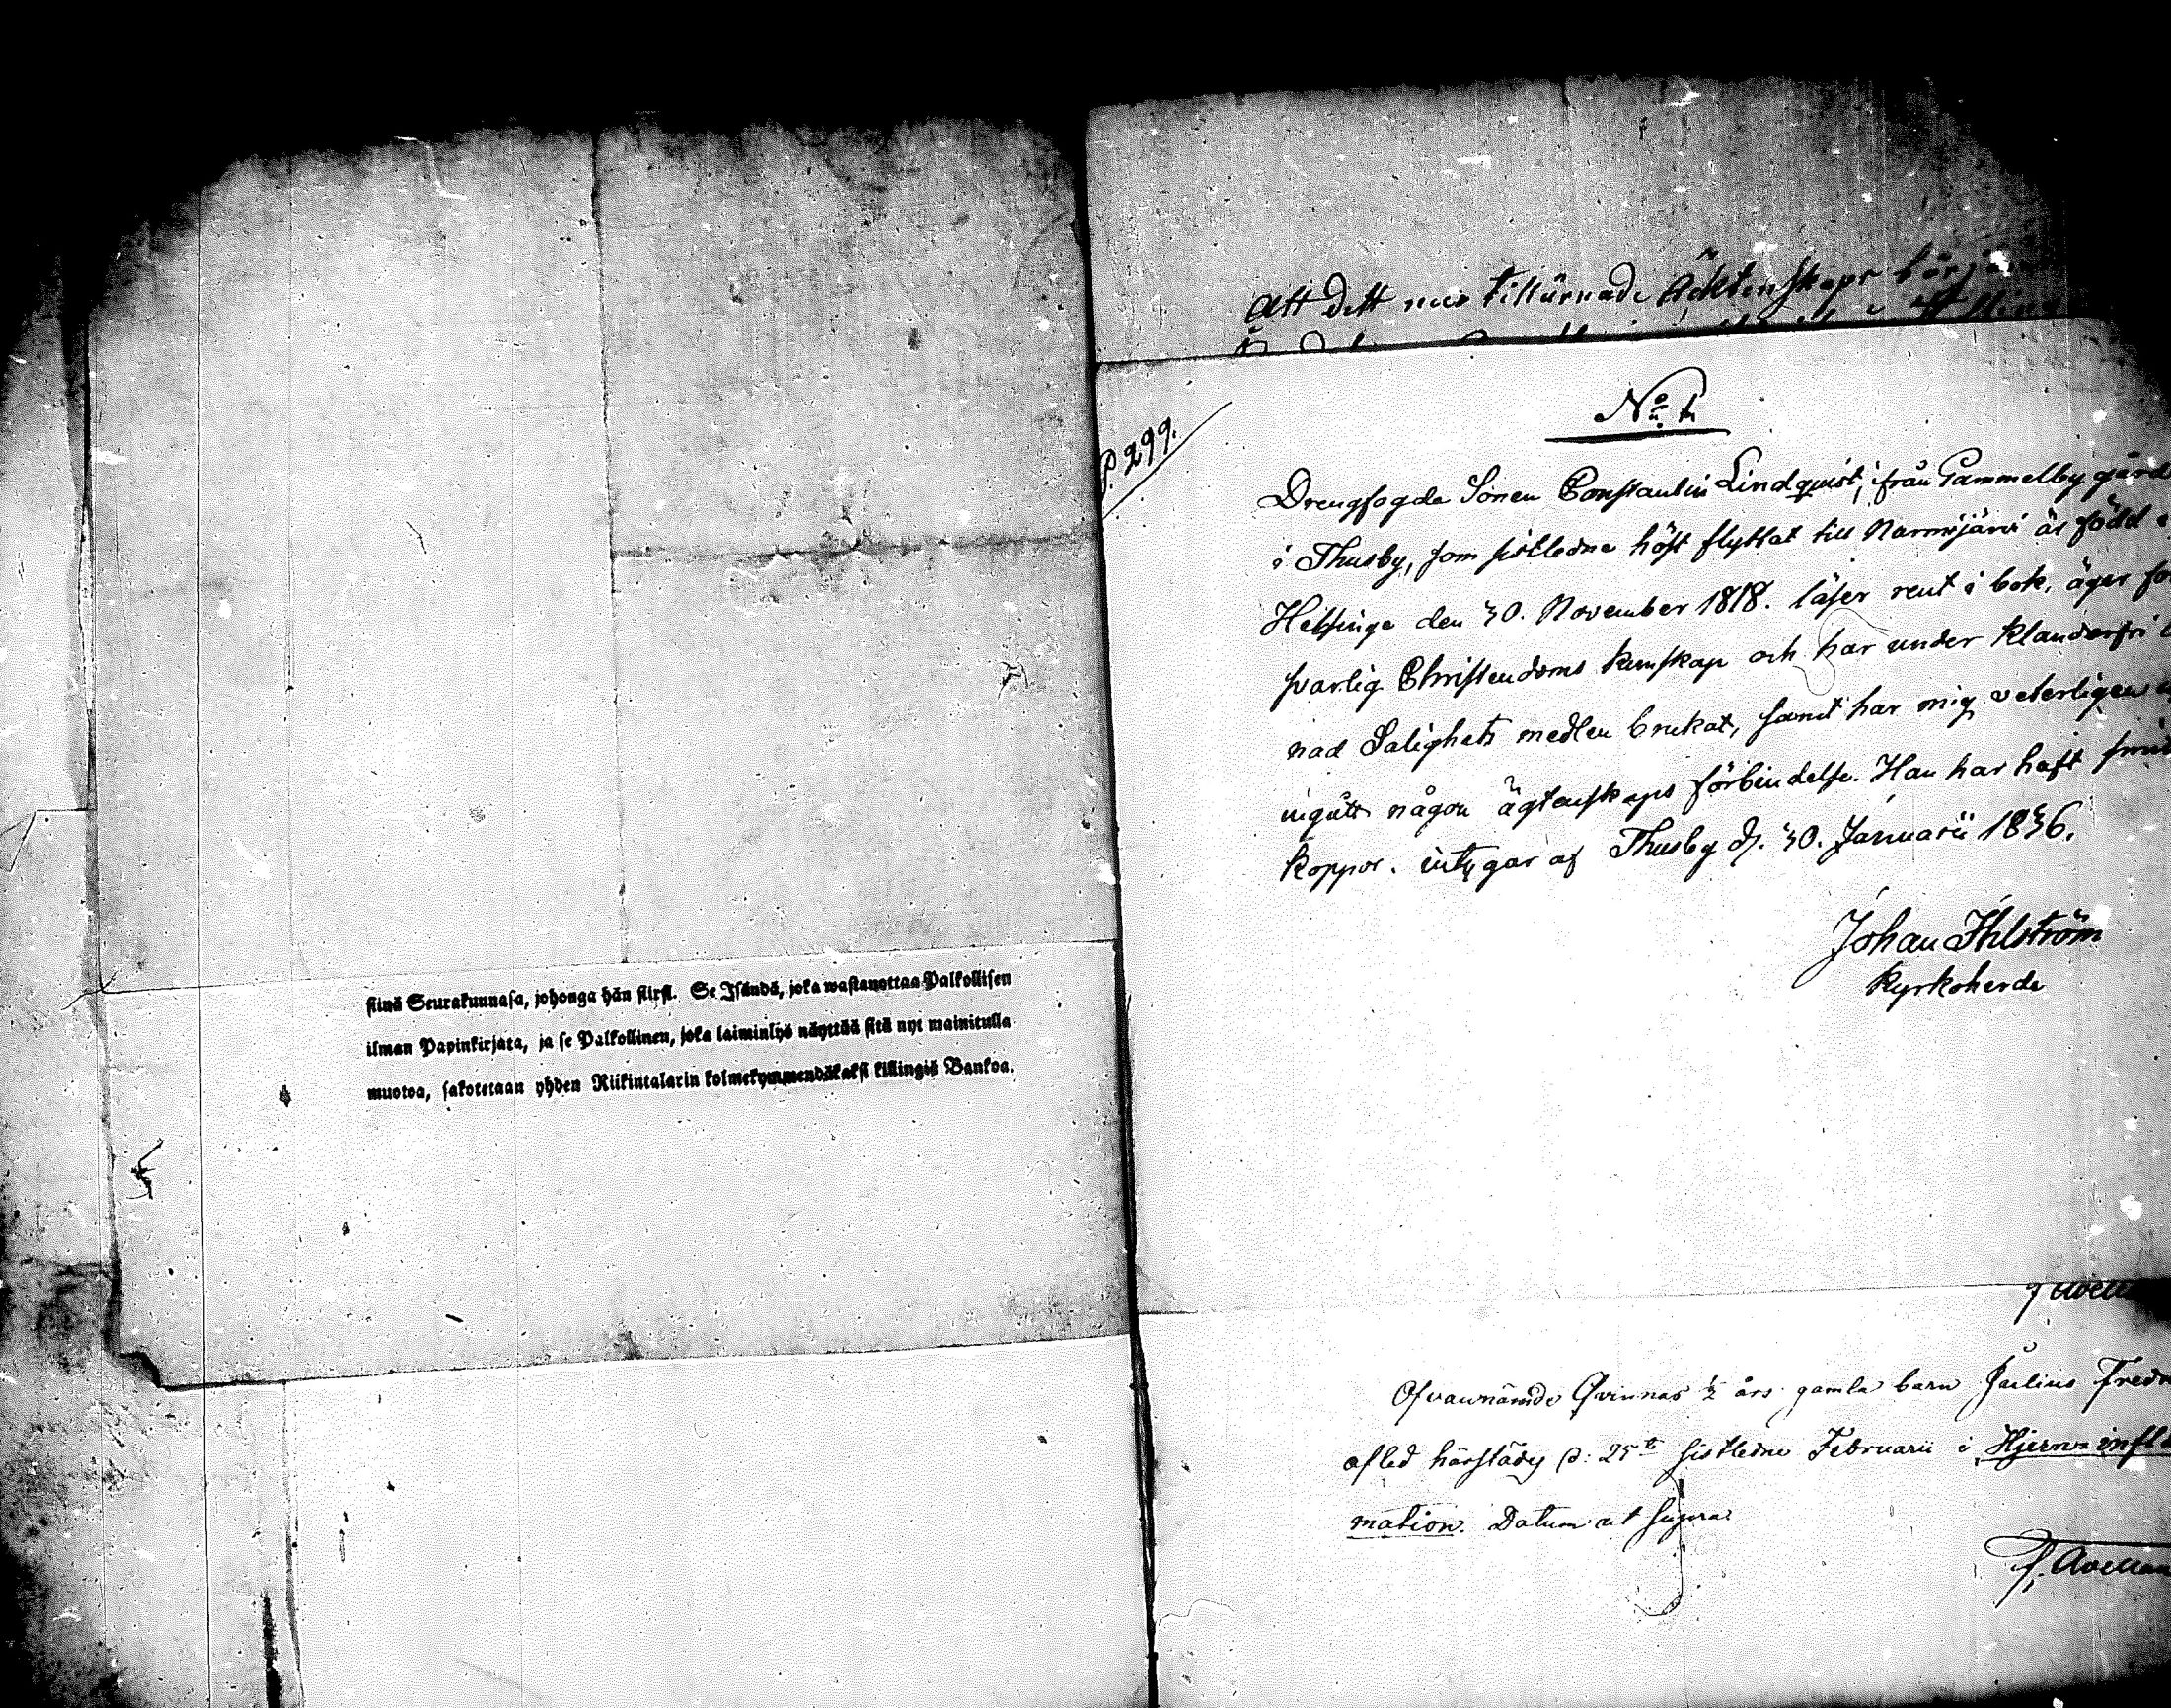 siinä Seurakunnasa, johonga hän siirsi. Se Isändä, joka wastanottaa Palkollisen
ilman Papinkirjata, ja se Palkollinen, joka laiminlyö näyttää sitä nyt mainitulla
muotoa, sakotetaan yhden Riikintalarin kolmekymmendäkaksi killingiä Bankoa.
Att dett nu tillärnade Äcktenskaps
P. 299.
Drengfogde Sonen Constantin Lindqvist, från Gammelby gård
i Thusby, som sistledne höst flyttat till Nurmijärvi är född i
Helsinge den 30. November 1818. läser rent i bok, äger för
svarlig Christendoms kunskap och har under klanderfri
nad Salighets medlen brukat, samt har mig veterligen
ingått någon ägtenskaps förbindelse. Han har haft
koppor. intygar af Thusby d. 30. Januarii 1836.
Johan Ihlström
Kyrkoherde
Ofvannämde Qvinnas ½ års gamla barn Julius
afled härstädes d: 25te sistledne Februarii i Hjern infla
mation. Datum ut supra